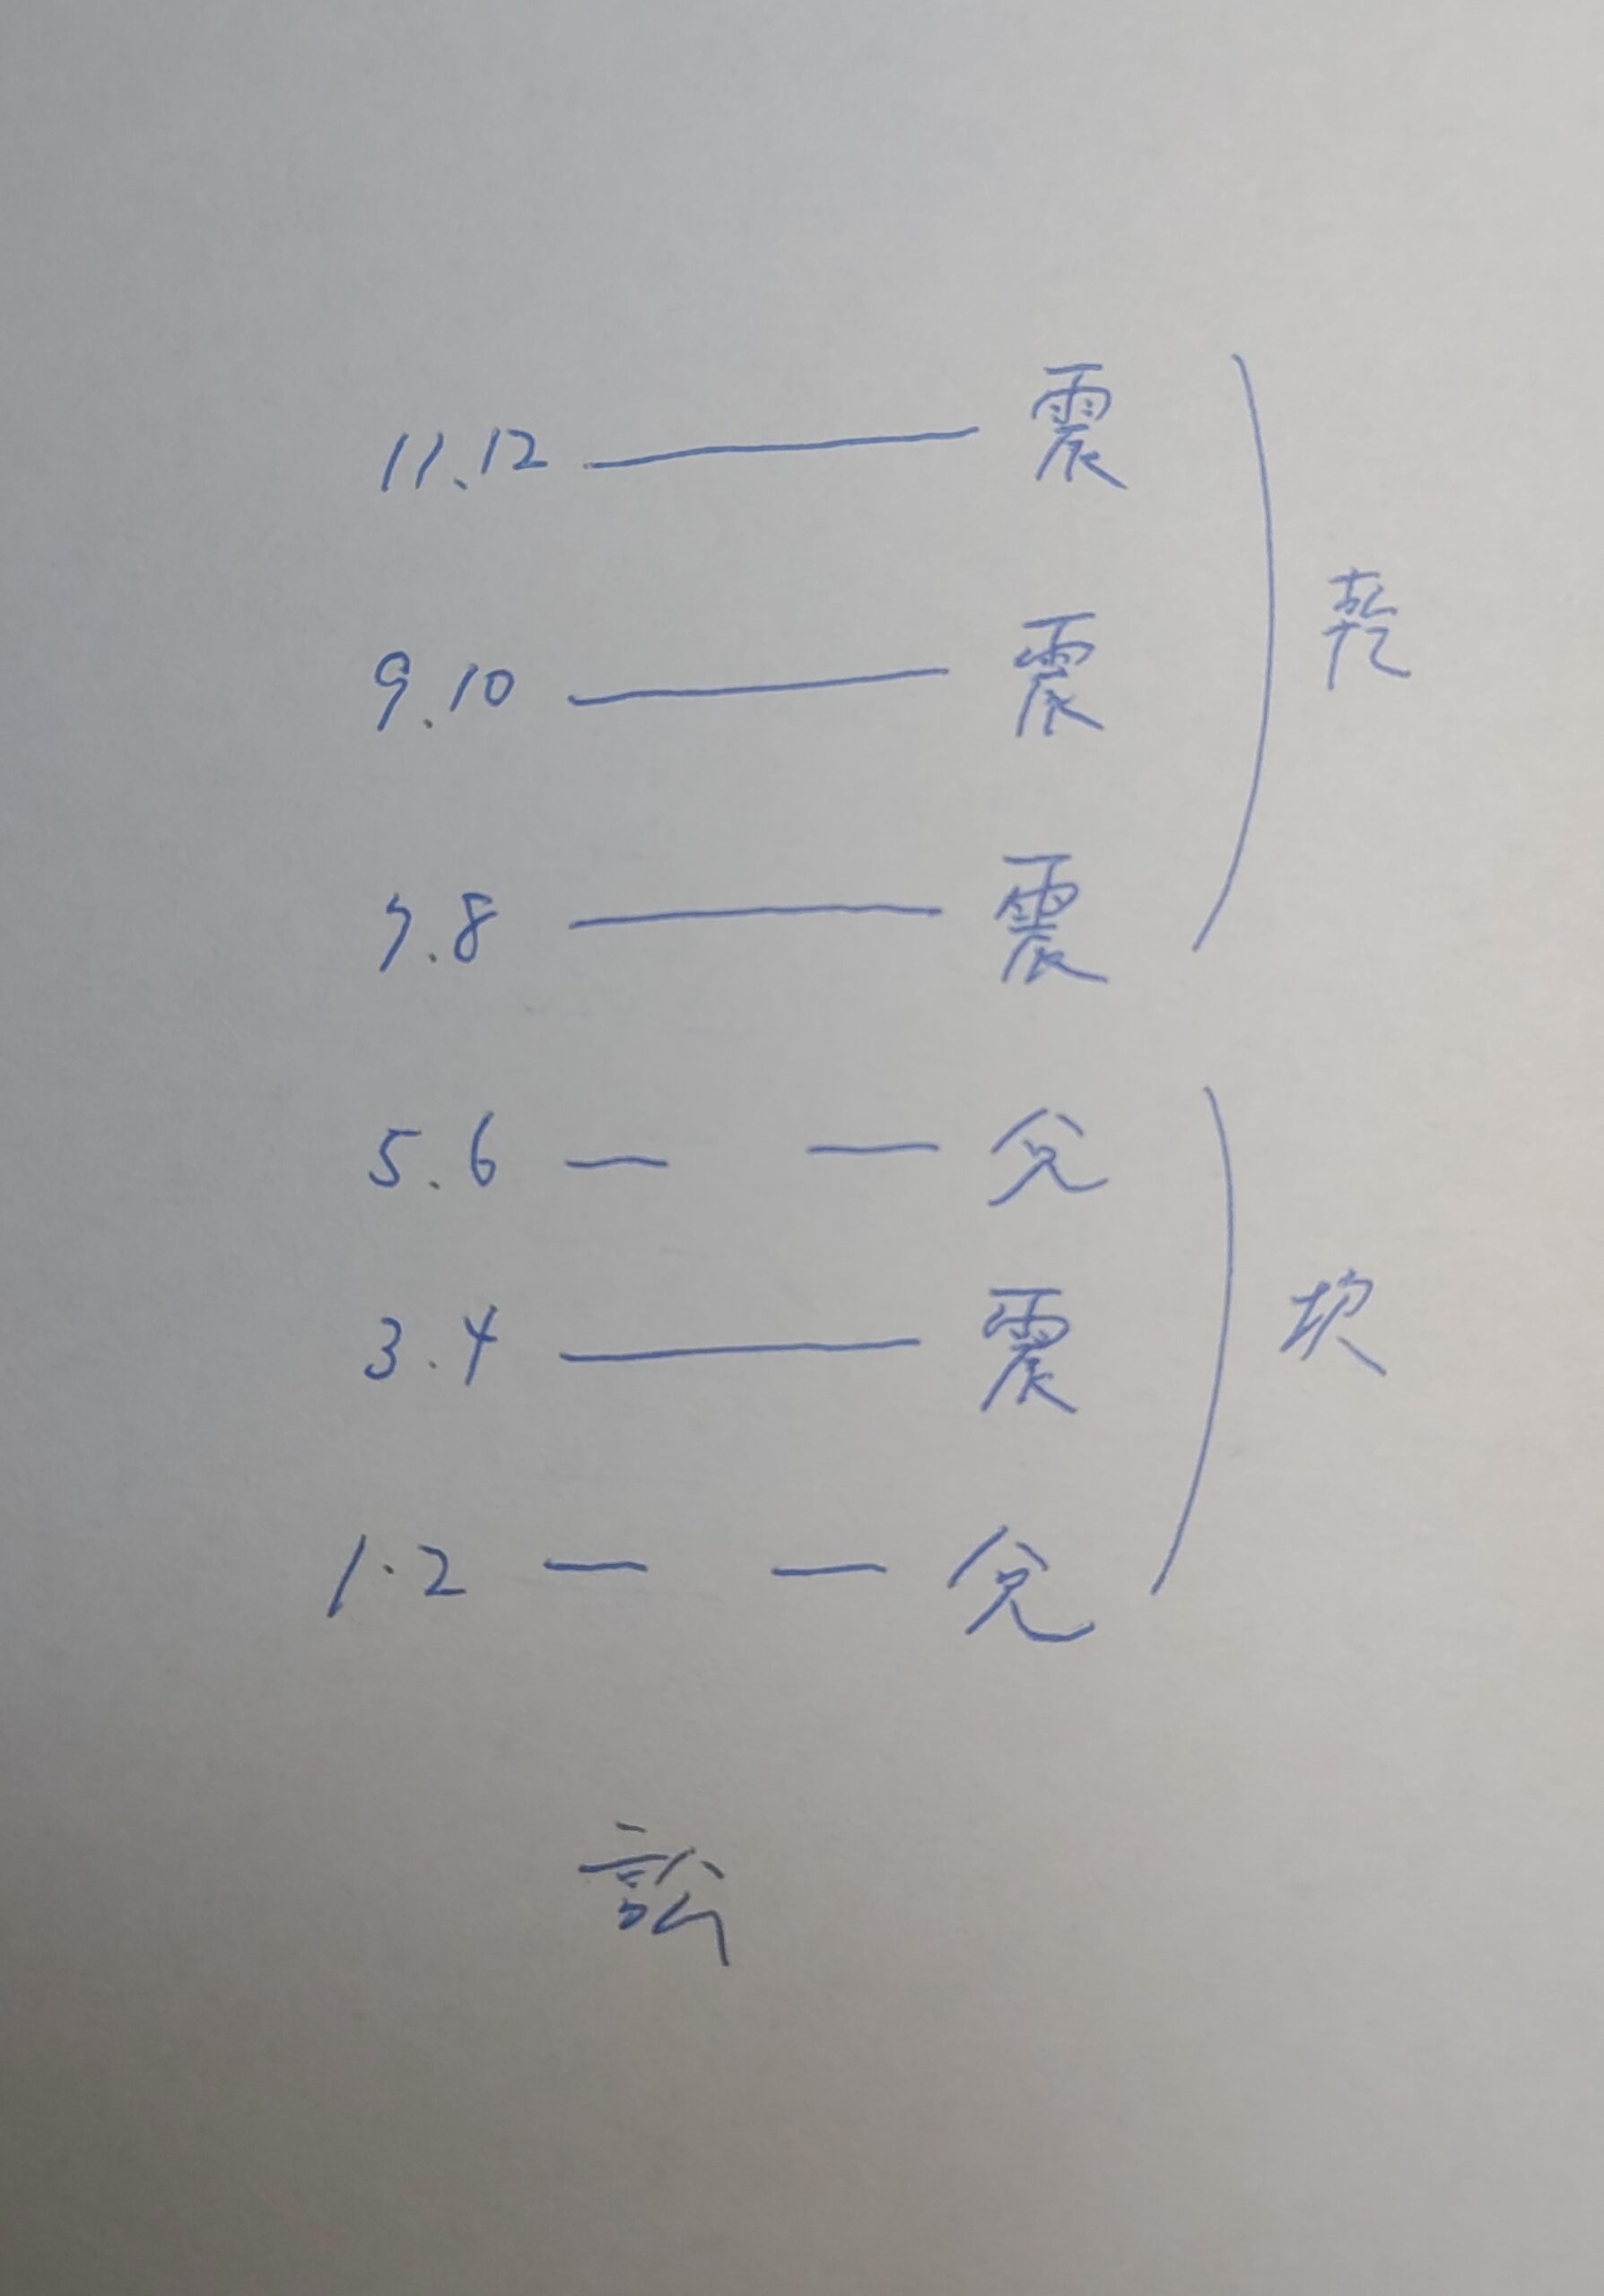 11.12 震
9.10 震
乾
7.8 震
5.6 兌
3.4 震
坎
1.2 兌
訟